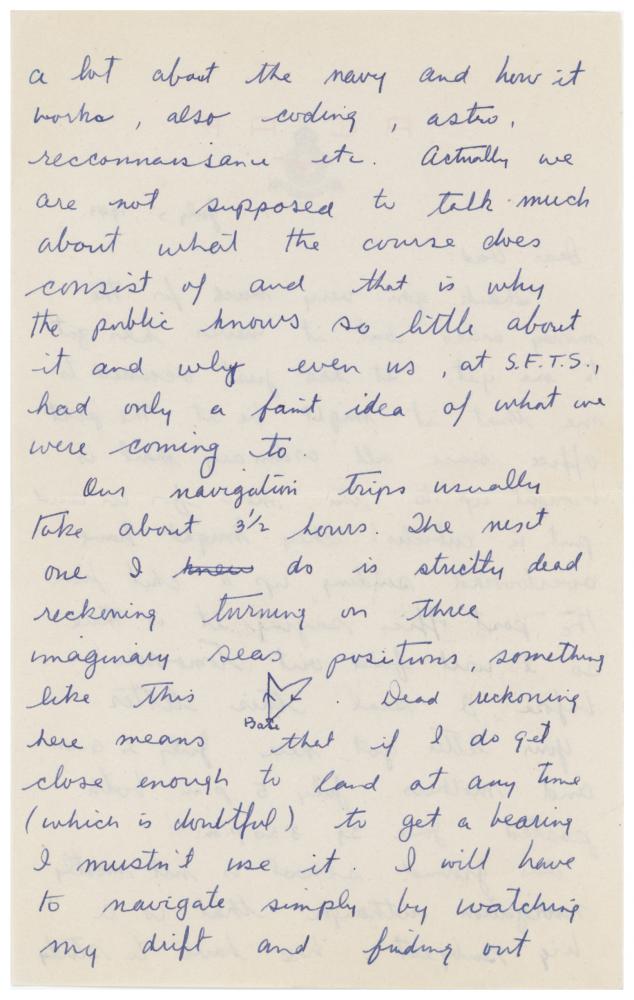 a lot about the navy and how it
works, also coding, astro,
recconnaissance etc. Actually we
are not supposed to talk much
about what the course does
consist of and that is why
the public knows so little about
it and why even us, at S.F.T.S.,
had only a faint idea of what we
were coming to.
Our navigation trips usually
take about 3½ hours. The next
one I knew do is strictly dead
reckoning turning on three
imaginary seas positions, something
like this Base . Dead reckoning
here means that if I do get
close enough to land at any time
(which is doubtful) to get a bearing
I mustn't use it. I will have
to navigate simply by watching
my drift and finding out